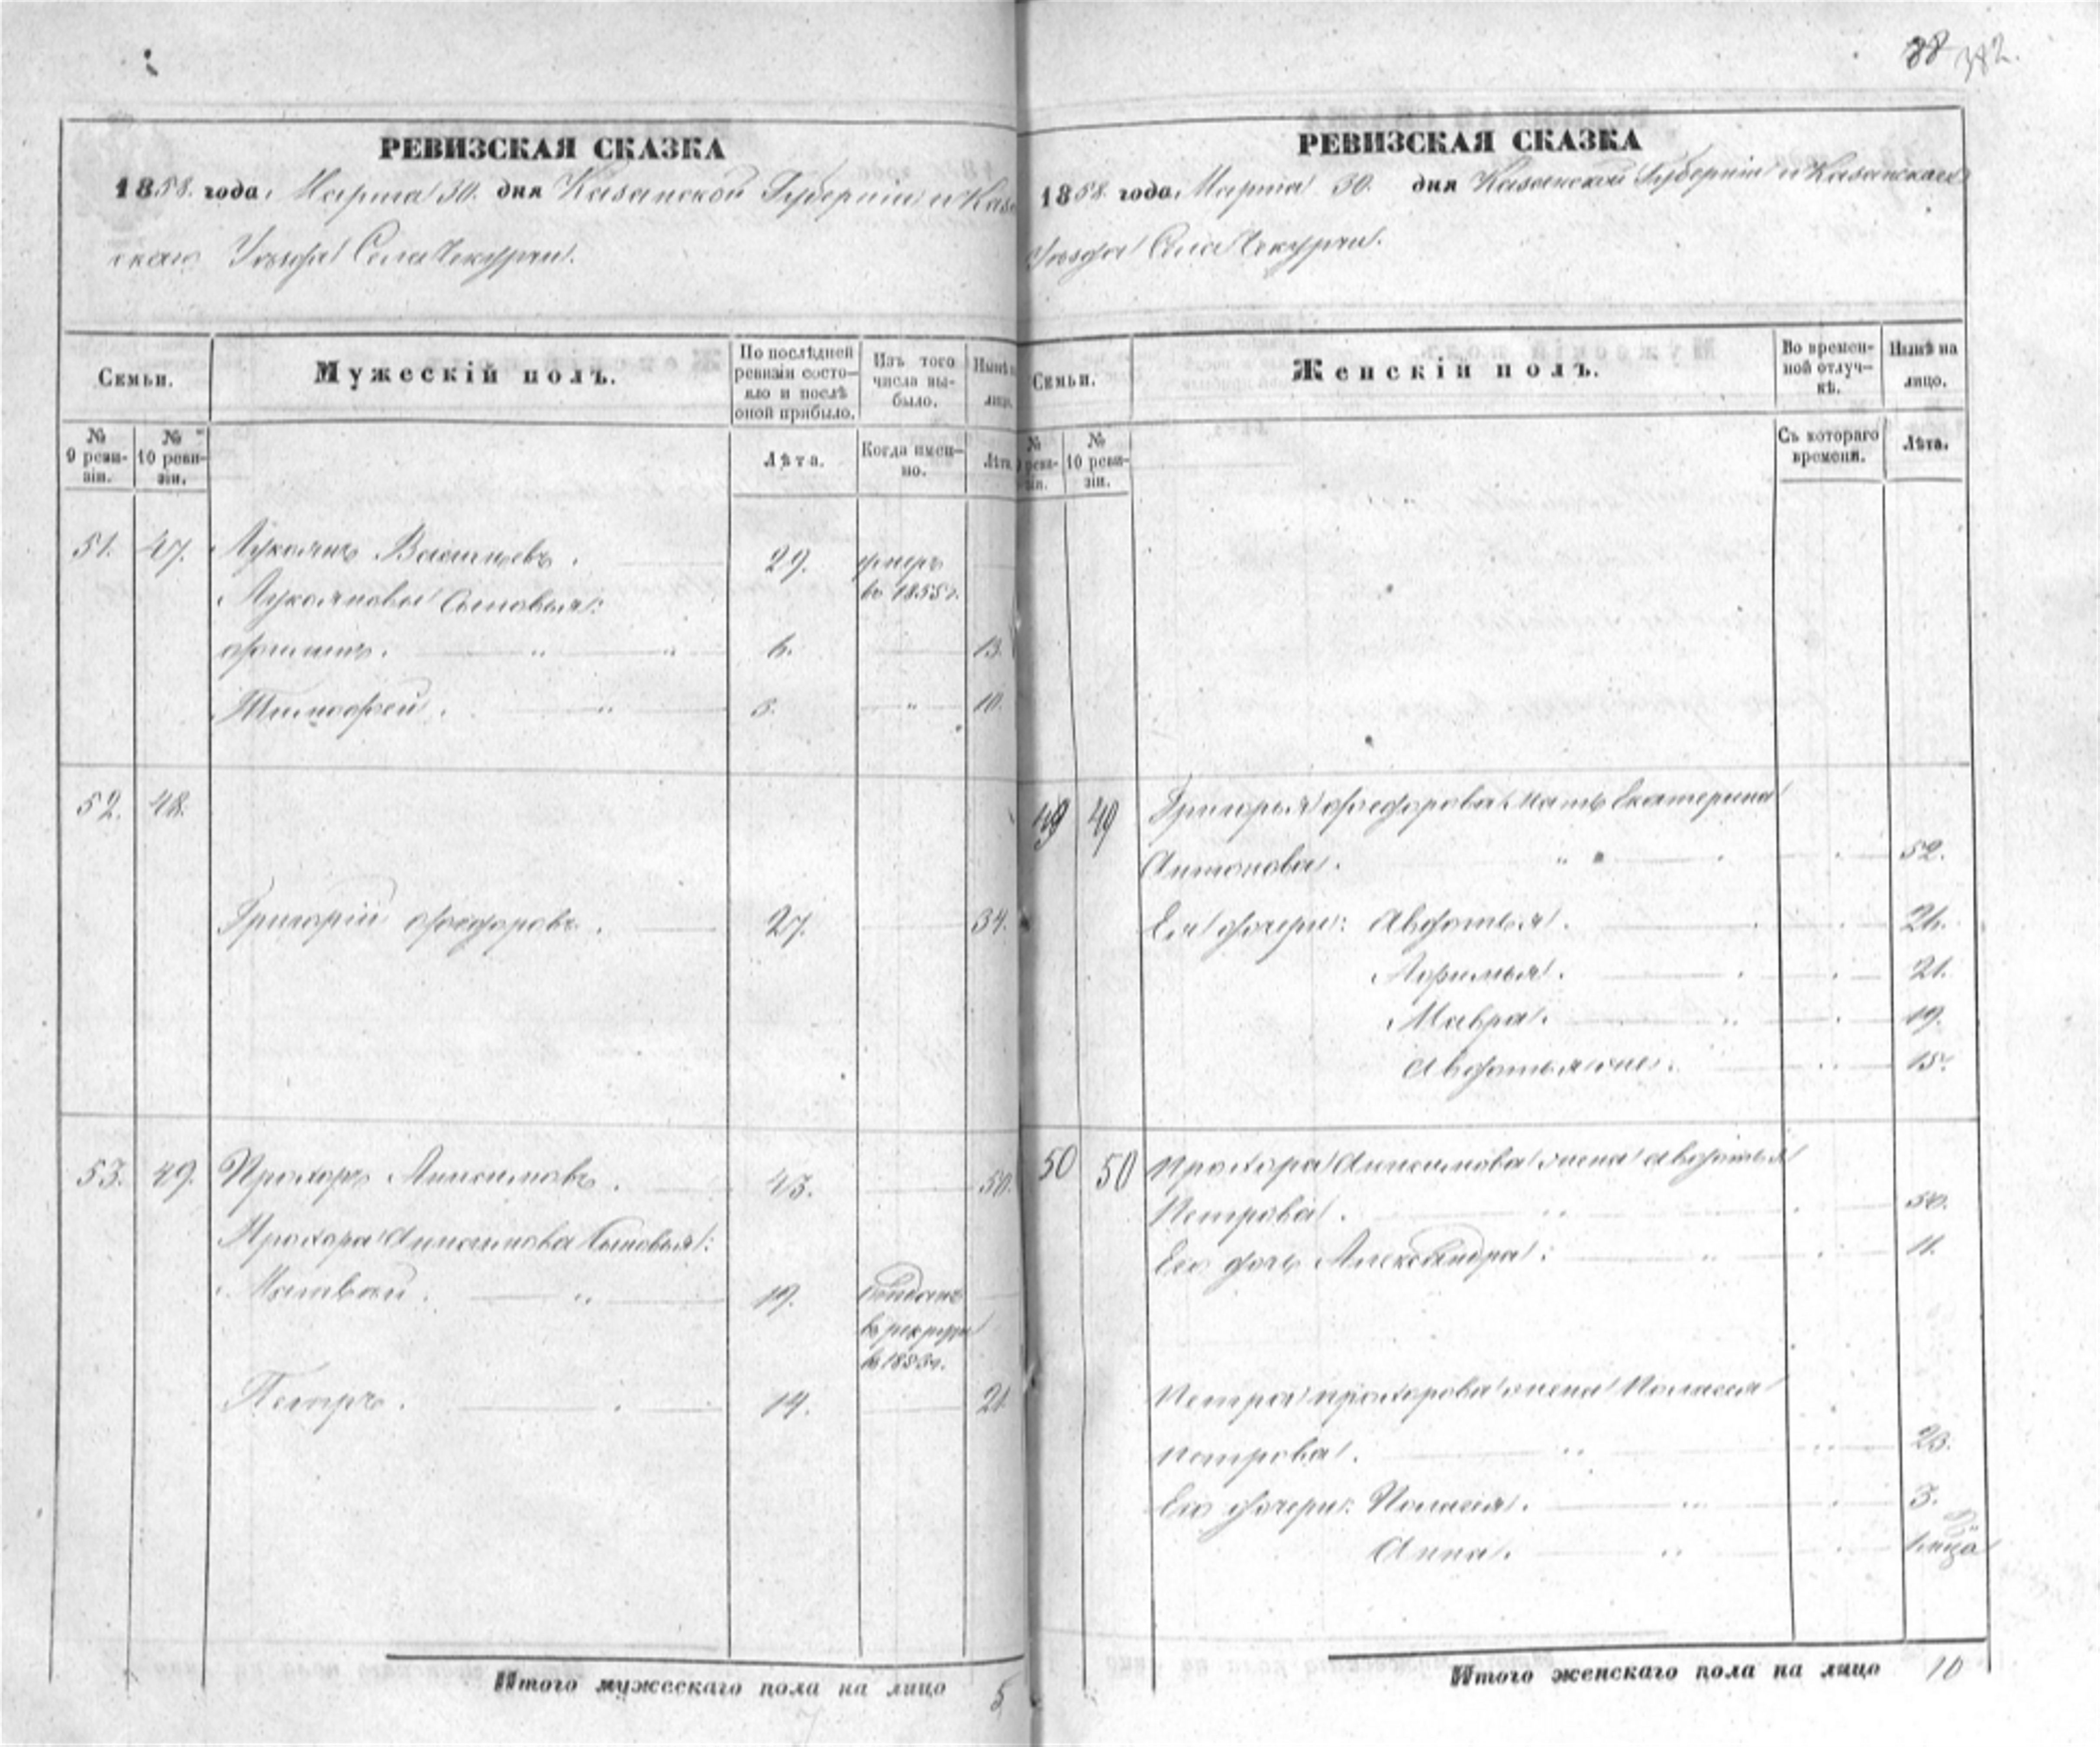 382.
РЕВИЗСКАЯ СКАЗКА
1858. года. Марта 30. дня Казанской Губерніи и Казан
скаго Уѣзда Села Чекурчи.
Семьи.
Мужескій полъ.
По послѣдней ревизіи состояло и послѣ оной прибыло.
Изъ того числа выбыло.
Нынѣ на лицо.
№ 9 ревизіи.
№ 10 ревизіи.
Лѣта.
Когда именно.
Лѣта
51. 47. Лукоянъ Васильевъ. 29. умеръ
въ 1855 г.
Лукояновы Сыновья:
Филипъ. 6. 13.
Тимофей. 3. 10.
52. 48.
Григорій Федоровъ. 27. 34.
53. 49. Прохоръ Анисимовъ. 43. 50.
Прохора Анисимова Сыновья:
Матвѣй. 19. отданъ
въ рекруты
въ 1853 г.
Петръ. 14. 21.
Итого мужескаго пола на лицо 5
РЕВИЗСКАЯ СКАЗКА
1858. года. Марта 30. дня Казанской Губерніи и Казанскаго
Уѣзда Села Чекурчи.
Семьи.
Женскій полъ.
Во временной отлучкѣ.
Нынѣ на лицо.
№ 9 ревизіи.
№ 10 ревизіи.
Съ котораго времени.
Лѣта.
49 49 Григорья Федорова мать Екатерина
Антонова. 52.
Ея дочери: Авдотья. 26.
Афимья. 21.
Мавра. 19.
Авдотья же. 15.
50 50 Прохора Анисимова жена Авдотья
Петрова. 50.
Его дочь Александра: 11.
Петра Прохорова жена Паласея
Петрова. 23.
Его дочери: Паласея. 3.
Анна.
Итого женскаго пола на лицо 10